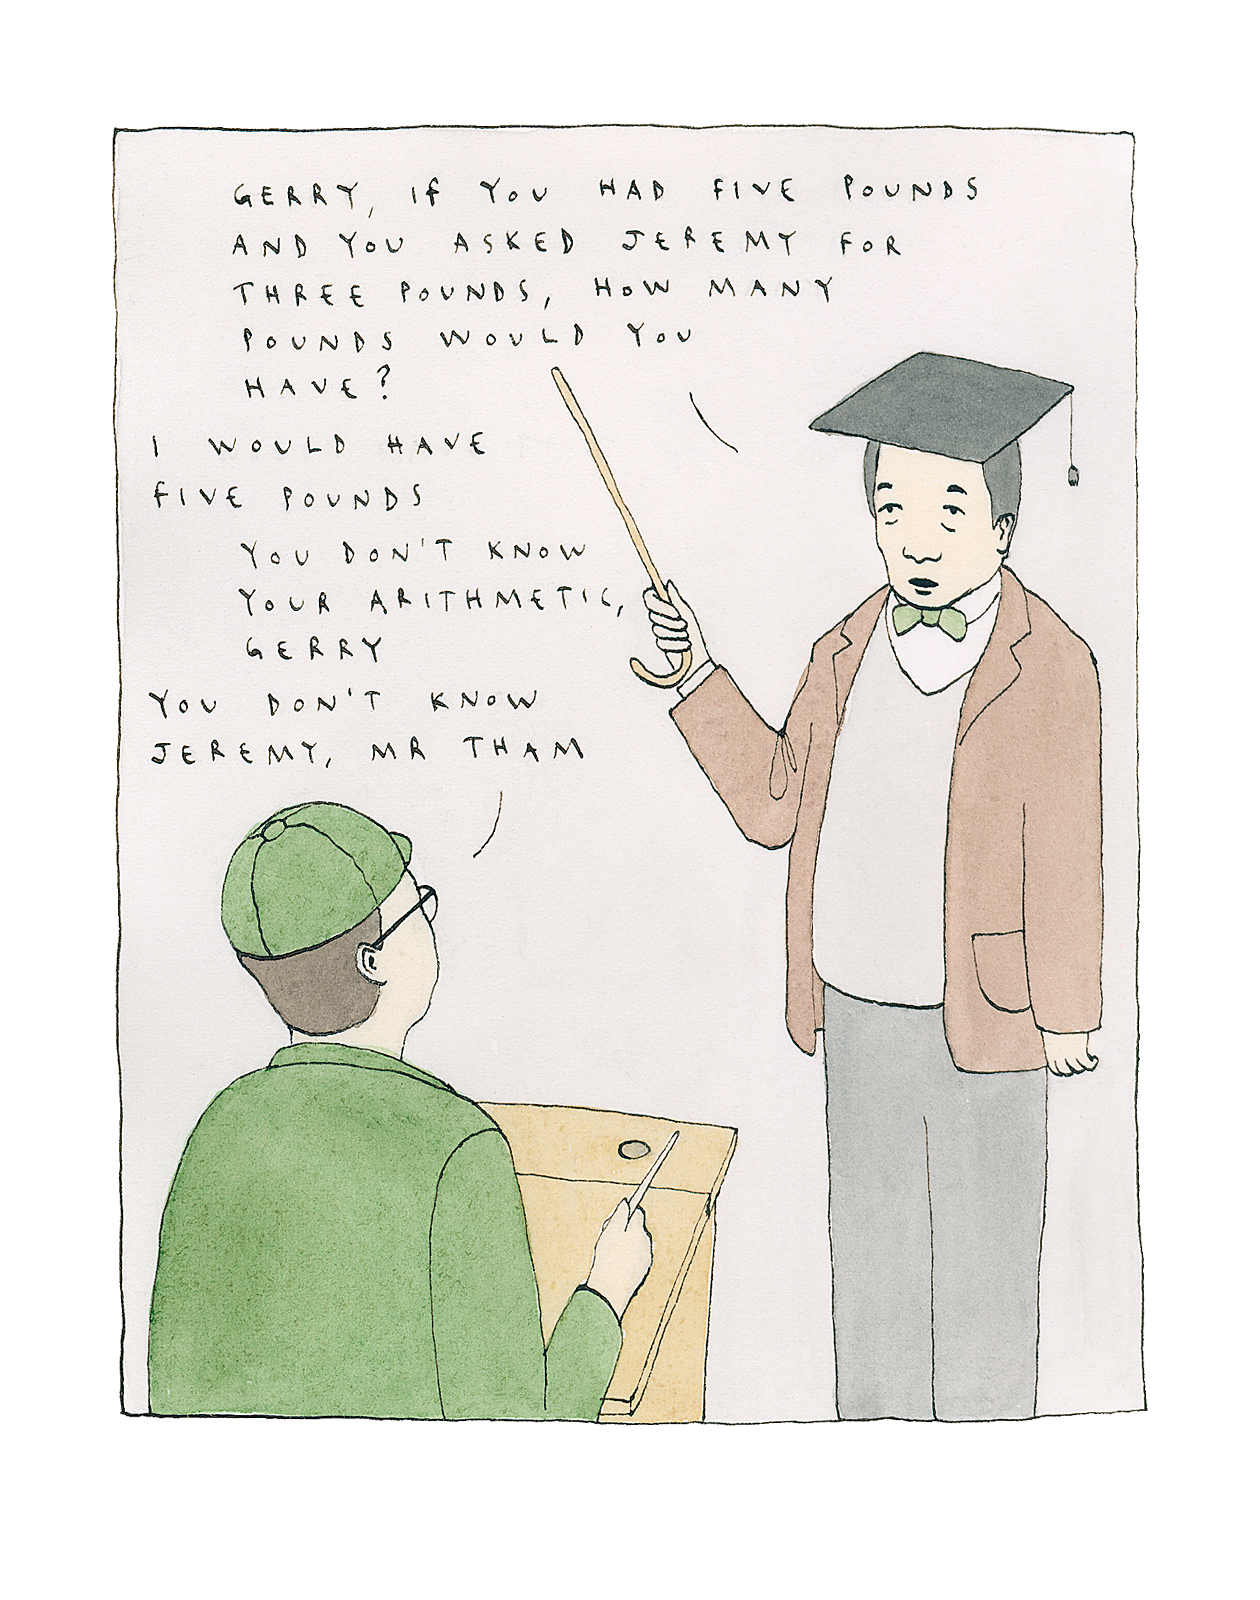 GERRY, IF YOU HAD FIVE POUNDS
AND YOU ASKED JEREMY FOR
THREE POUNDS, HOW MANY
POUNDS WOULD YOU
HAVE?
I WOULD HAVE
FIVE POUNDS
YOU DON'T KNOW
YOUR ARITHMETIC,
GERRY
YOU DON'T KNOW
JEREMY, MR THAM